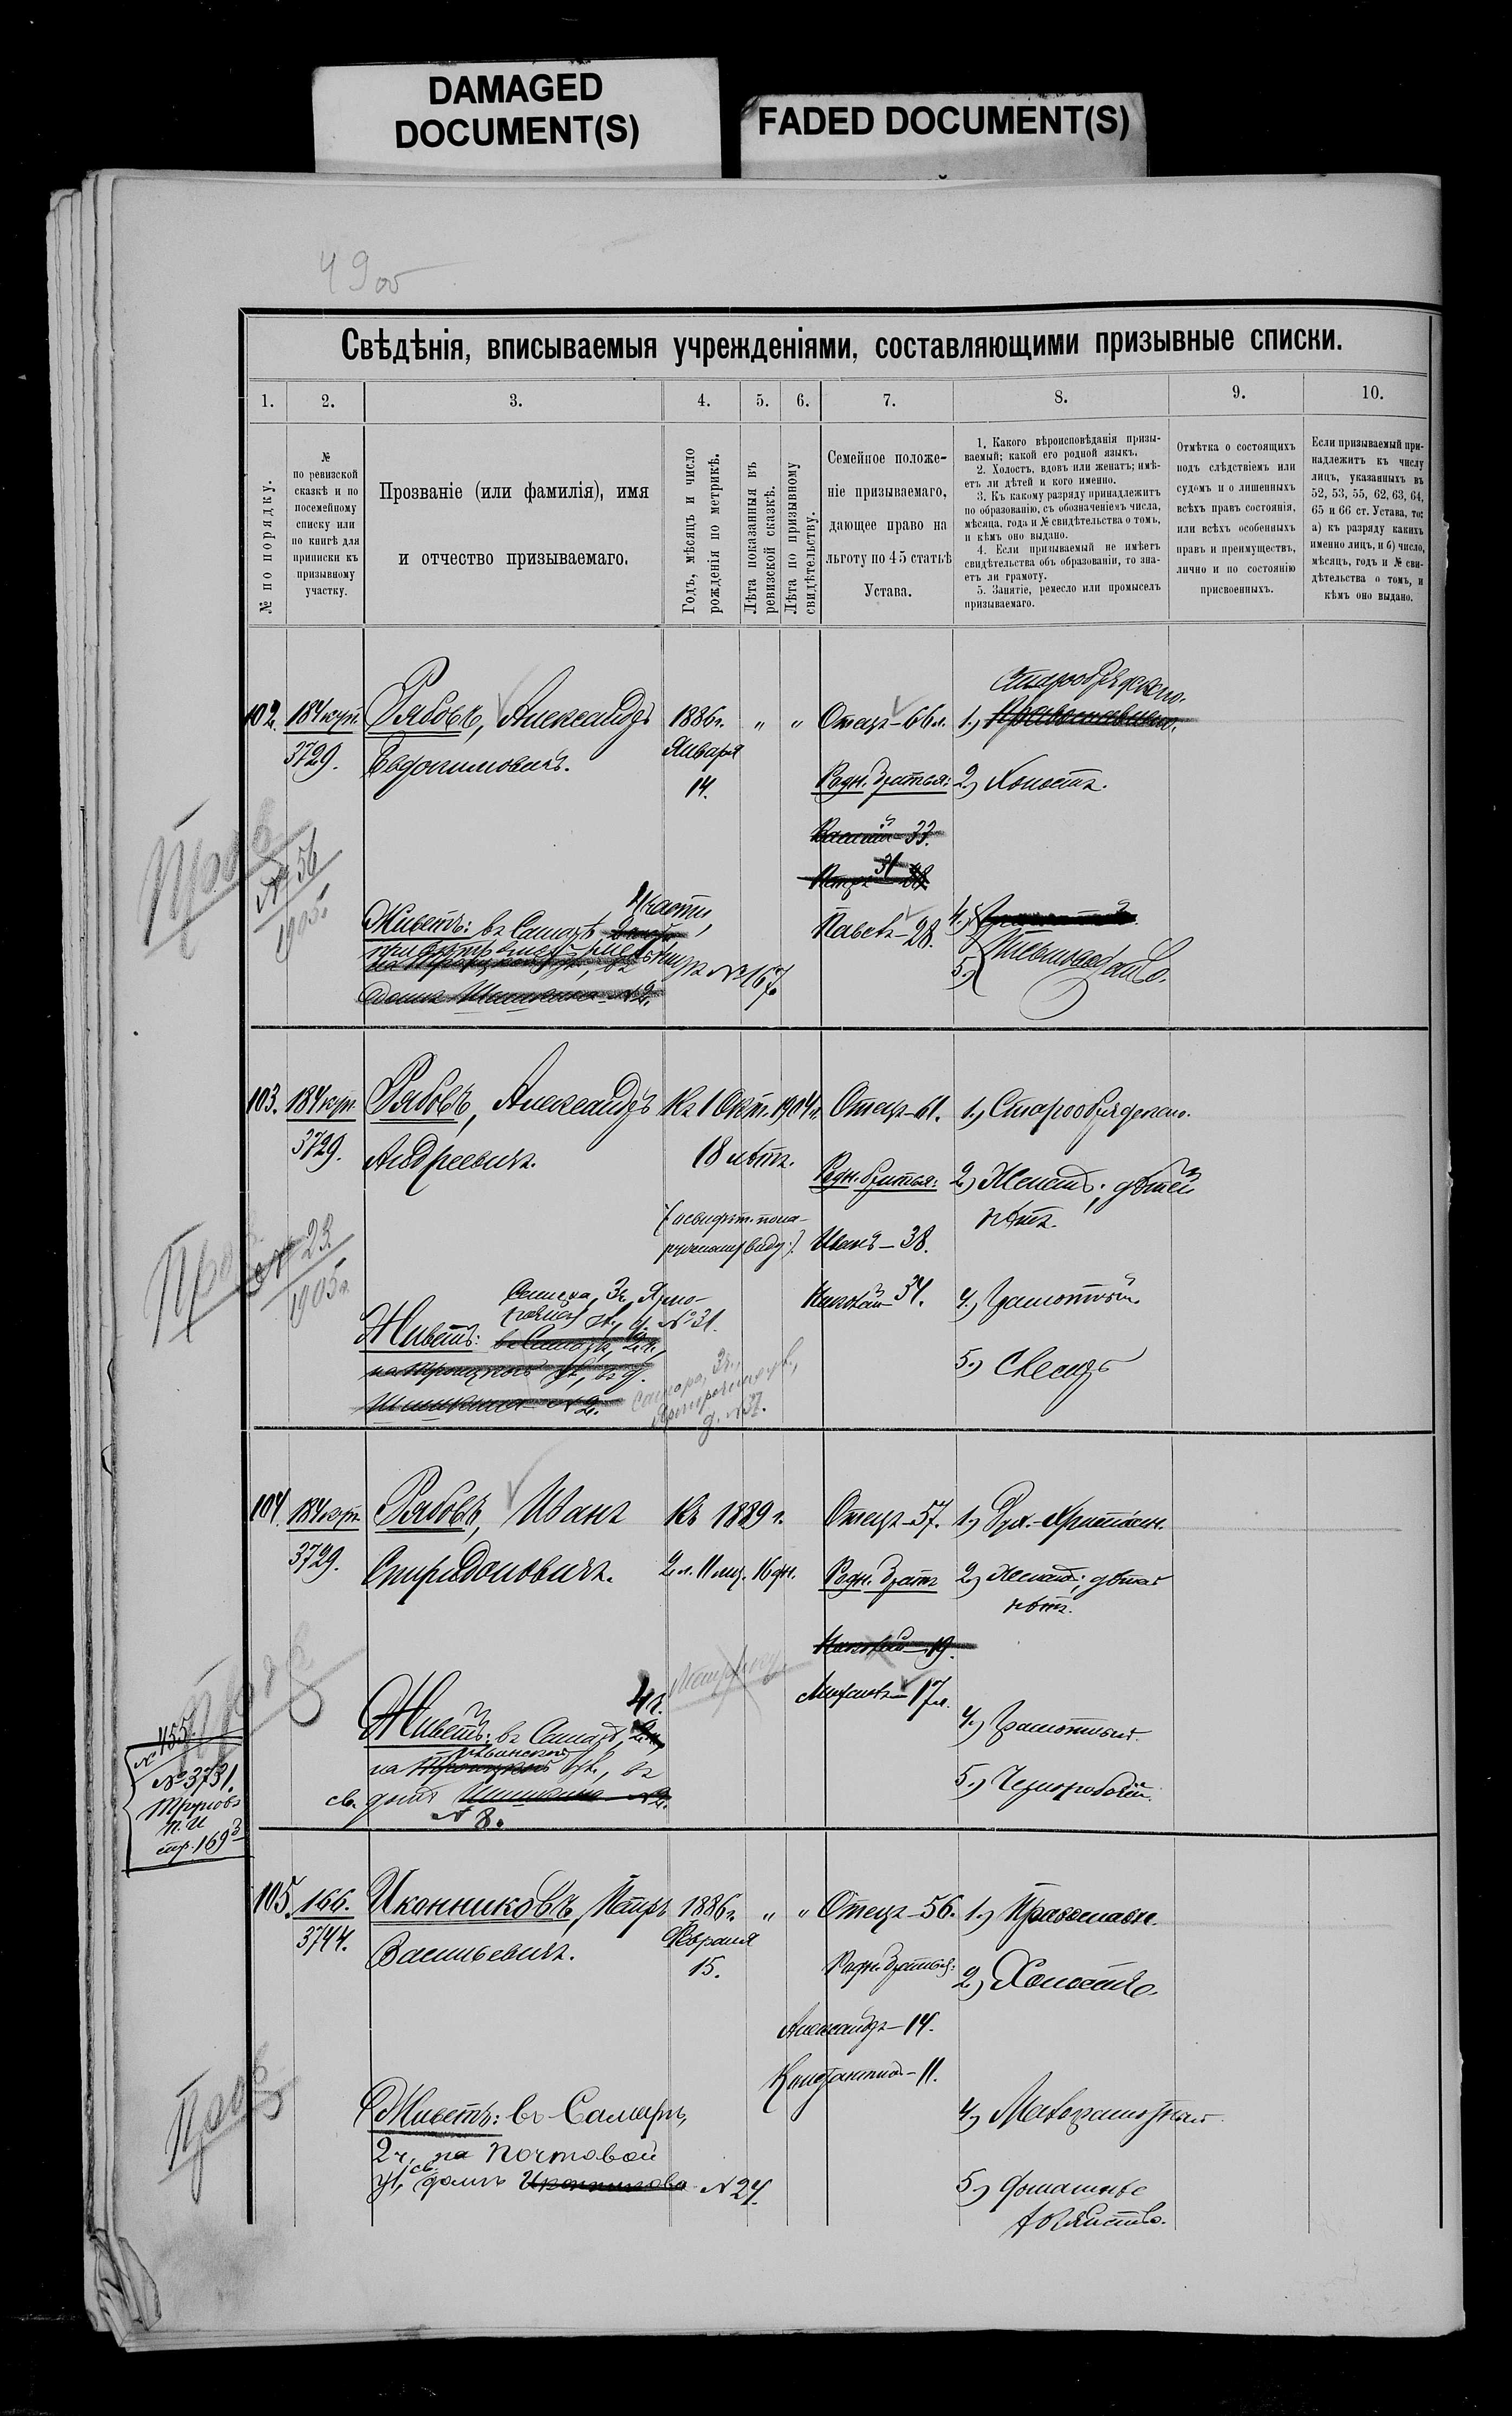 DAMAGED
DOCUMENT(S)
FADED DOCUMENT(S)
Свѣдѣнія, вписываемыя учрежденіями, составляющими призывные списки.
1.
2.
3.
4.
5.
6.
7.
8.
9.
10.
№ по порядку.
№
по ревизской
сказкѣ и по
посемейному
списку или
по книгѣ для
приписки къ
призывному
участку.
Прозваніе (или фамилія), имя
и отчество призываемаго.
Годъ, мѣсяцъ и число
рожденія по метрикѣ.
Лѣта показанныя въ
ревизской сказкѣ.
Лѣта по призывному
свидѣтельству.
Семейное положе-
ніе призываемаго,
дающее право на
льготу по 45 статьѣ
Устава.
1. Какого вѣроисповѣданія призы-
ваемый; какой его родной языкъ.
2. Холостъ, вдовъ или женатъ; имѣ-
етъ ли дѣтей и кого именно.
3. Къ какому разряду принадлежитъ
по образованію, съ обозначеніемъ числа,
мѣсяца, года и № свидѣтельства о томъ,
и кѣмъ оно выдано.
4. Если призываемый не имѣетъ
свидѣтельства объ образованіи, то зна-
етъ ли грамоту.
5. Занятіе, ремесло или промыселъ
призываемаго.
Отмѣтка о состоящихъ
подъ слѣдствіемъ или
судомъ и о лишенныхъ
всѣхъ правъ состоянія,
или всѣхъ особенныхъ
правъ и преимуществъ,
лично и по состоянію
присвоенныхъ.
Если призываемый при-
надлежитъ къ числу
лицъ, указанныхъ въ
52, 53, 55, 62, 63, 64,
65 и 66 ст. Устава, то:
а) къ разряду какихъ
именно лицъ, и б) число,
мѣсяцъ, годъ и № сви-
дѣтельства о томъ, и
кѣмъ оно выдано.
102. 184 куп.
3729.
Рябовъ, Александръ
Евдокимовичъ.
1886 г.
Января
14.
" "
Отецъ - 66 л.
Родн. братья:
Василій - 33.
Петръ 31
Павелъ - 28.
Старообрядческ.
1.) Православнаго.
2.) Холостъ.
4.)
5.)
№ 56
1905.
Живетъ: въ Самарѣ
части,
№ 167.
103. 184 куп.
3729.
Рябовъ, Александръ
Андреевичъ.
Къ 1 Окт. 1904 г.
18 лѣтъ.
Отецъ - 61.
Родн. братья:
Иванъ - 38.
Николай 34.
1.) Старообрядческ.
2.) Женатъ; дѣтей
нѣтъ.
4.) Грамотный.
5.) Слесарь
№ 23.
1905 г.
№ 31.
Живетъ: въ Самарѣ, 2 ч.,
на Троицкой ул., въ д.
№ 2.
Самара, 3 ч.,
104. 184 куп.
3729.
Рябовъ, Иванъ
Спиридоновичъ.
Къ 1889 г.
2 л. 11 мц. 16 дн.
Отецъ - 57.
Родн. братъ
Николай - 19.
Михаилъ - 17 л.
1.)
2.) Женатъ; дѣтей
нѣтъ.
4.) Грамотный.
5.) Чернорабочій.
4 ч.
Живетъ: въ Самарѣ, 2 ч.,
на Троицкой ул., въ
св. домѣ № 2.
№ 8.
№ 455.
№ 3731.
стр. 169
105. 166.
3744.
Иконниковъ, Петръ
Васильевичъ.
1886 г.
Февраля
15.
" "
Отецъ - 56.
Родн. братья:
Александръ - 14.
Константинъ - 11.
1.) Православн.
2.) Холостъ.
4.) Малограмотный
5.) Домашнее
хозяйство.
Живетъ: въ Самарѣ,
2 ч. на Почтовой
ул., св. домъ Иконникова № 24.